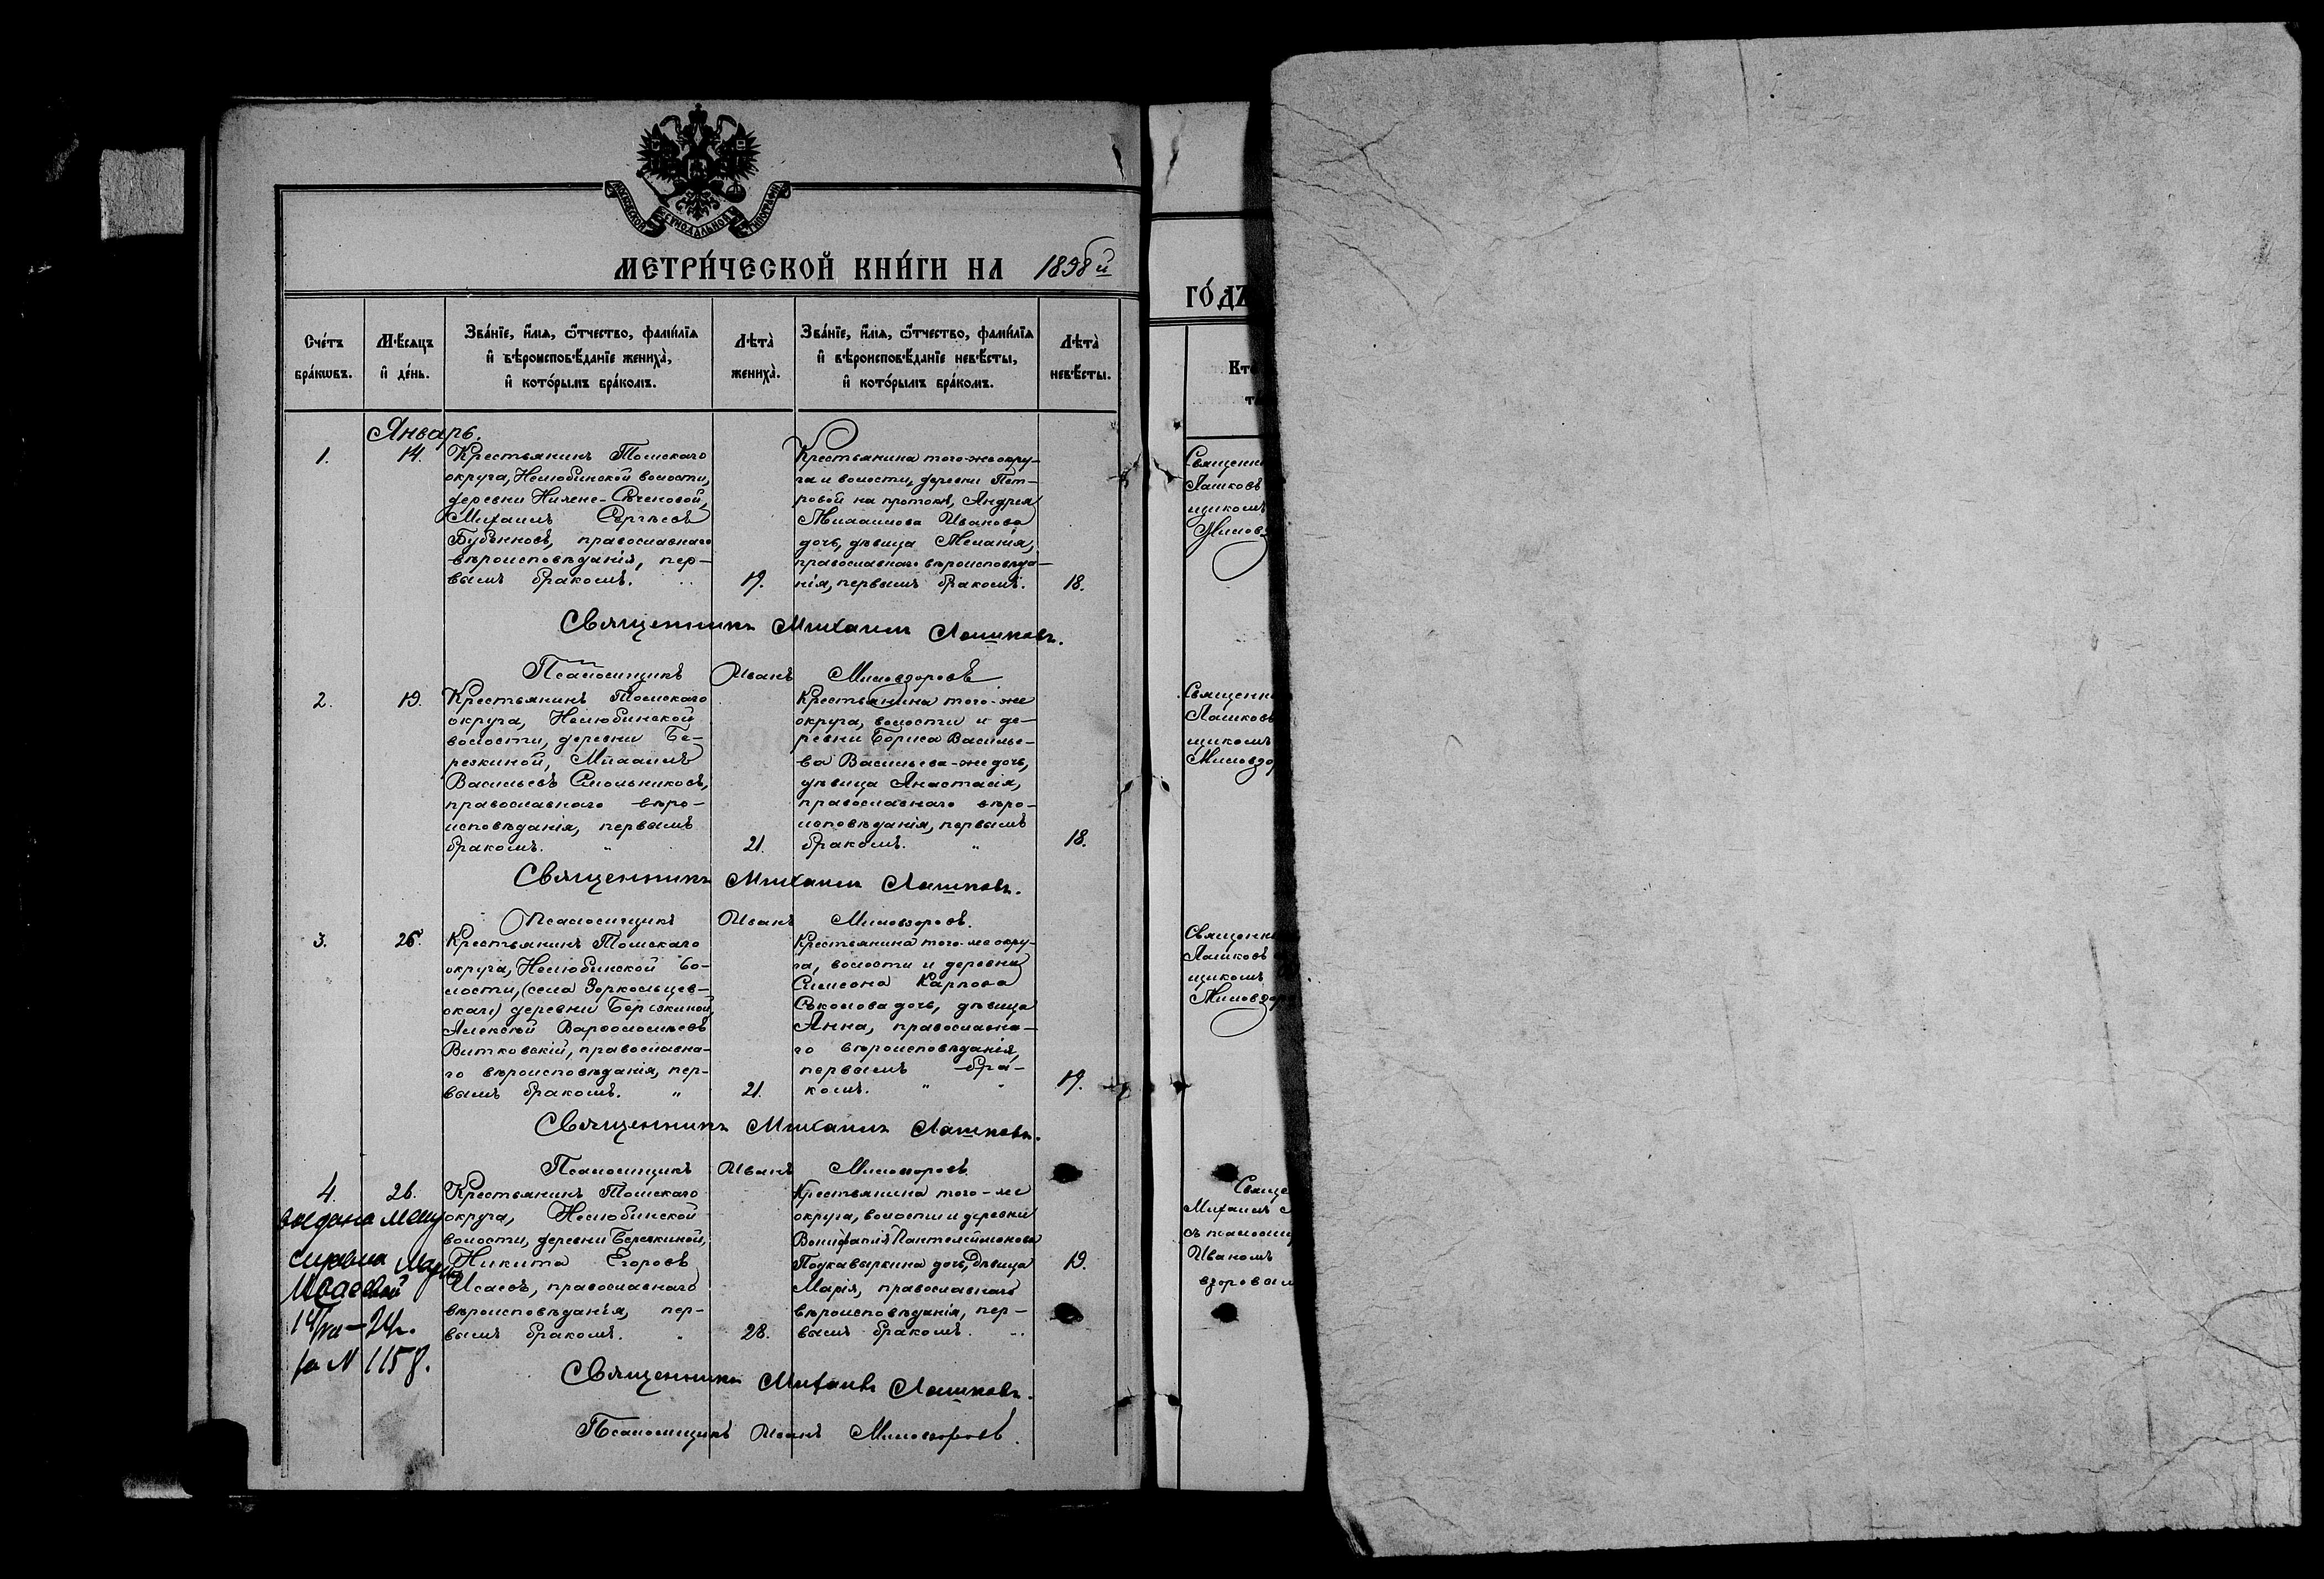 МОСКОВСКОЙ СѴНОДАЛЬНОЙ ТИПОГРАФІИ
МЕТРИ́ЧЕСКОЙ КНИ́ГИ НА 1898й
Сче́тъ бра́кωвъ.
Мѣ́сяцъ и҆ де́нь.
Зва́нїе, и҆́мѧ, ѻ҆́тчество, фами́лїѧ
и҆ вѣроисповѣ́данїе жениха̀,
и҆ кото́рымъ бра́комъ.
Лѣта̀ жениха̀.
Зва́нїе, и҆́мѧ, ѻ҆́тчество, фами́лїѧ
и҆ вѣроисповѣ́данїе невѣ́сты,
и҆ кото́рымъ бра́комъ.
Лѣта̀ невѣ́сты.
Январь.
1.
14.
Крестьянинъ Томскаго
округа, Нелюбинской волости,
деревни Нижне-Сѣченовой,
Михаилъ Сергѣевъ
Бубенновъ, православнаго
вѣроисповѣданія, пер-
вымъ бракомъ.
19.
Крестьянина того-же окру-
га и волости, деревни Пет-
ровой на протокѣ, Андрея
Михаилова Иванова
дочь, дѣвица Меланія,
православнаго вѣроисповѣда-
нія, первымъ бракомъ.
18.
Священникъ Михаилъ Лашковъ.
Псаломщикъ Иванъ Миловзоровъ
2.
19.
Крестьянинъ Томскаго
округа, Нелюбинской
волости, деревни Бе-
резкиной, Михаилъ
Васильевъ Смольниковъ,
православнаго вѣро-
исповѣданія, первымъ
бракомъ. "
21.
Крестьянина того-же
округа, волости и де-
ревни Бориса Василье-
ва Васильева-же дочь,
дѣвица Анастасія,
православнаго вѣро-
исповѣданія, первымъ
бракомъ. "
18.
Священникъ Михаилъ Лашковъ.
Псаломщикъ Иванъ Миловзоровъ.
3.
Крестьянинъ Томскаго
округа, Нелюбинской во-
лости, (села Зоркольцев-
скаго) деревни Березкиной,
Алексѣй Варѳоломѣевъ
Витковскій, православна-
го вѣроисповѣданія, пер-
вымъ бракомъ. "
21.
Крестьянина того-же окру-
га, волости и деревни
Симеона Карпова
Соколова дочь, дѣвица
Анна, православна-
го вѣроисповѣданія,
первымъ бра-
комъ. " "
19.
Священникъ Михаилъ Лашковъ.
Псаломщикъ Иванъ Миловзоровъ
4.
26.
Крестьянинъ Томскаго
округа, Нелюбинской
волости, деревни Березкиной,
Никита Егоровъ
Исаевъ, православнаго
вѣроисповѣданія, пер-
вымъ бракомъ. "
28.
Крестьянина того-же
округа, волости и деревни
Вонифатія Пантелеймонова
Подкавыркина дочь, Дѣвица
Марія, православнаго
вѣроисповѣданія, пер-
вымъ бракомъ.
19.
выдана
справка
Исаевой
14/VII-24г.
за N 1158.
Священникъ Михаилъ Лашковъ.
Псаломщикъ Иванъ Миловзоровъ
ГО́ДЪ
Кто
Священни
Лашковъ
щикомъ
Милов
Священни
Лашковъ
щикомъ
Миловзор
Священни
Лашковъ
щикомъ
Миловзор
Свяще
Михаилъ
съ псаломщ
Иваномъ
взоровым